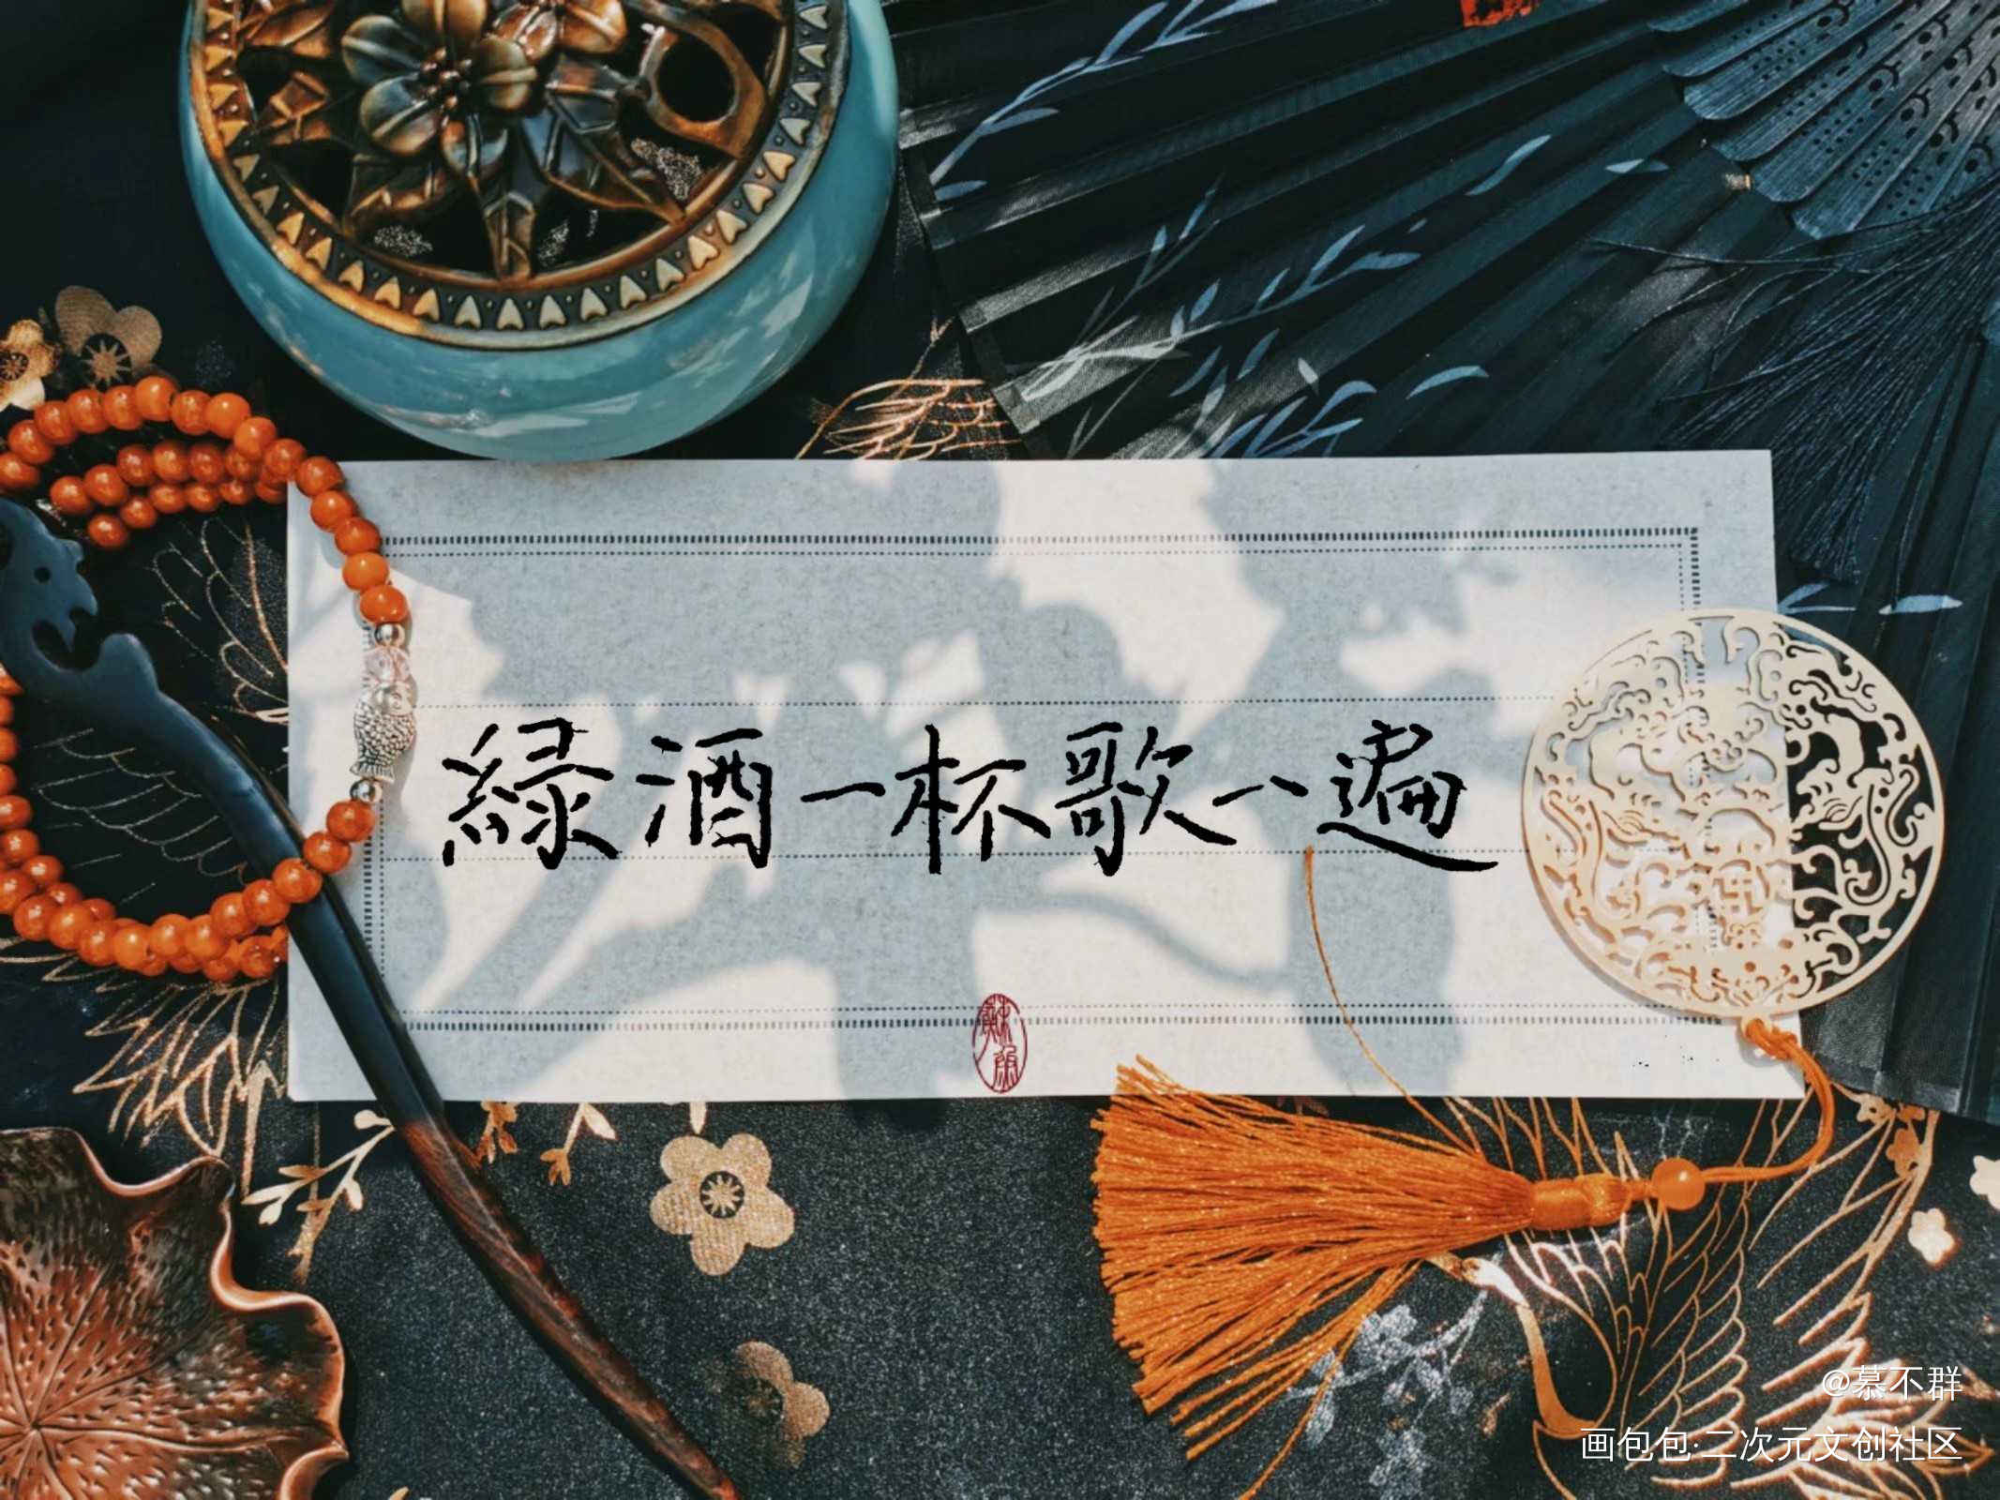 綠酒一杯歌一遍
@慕不群
画包包·二次元文创社区